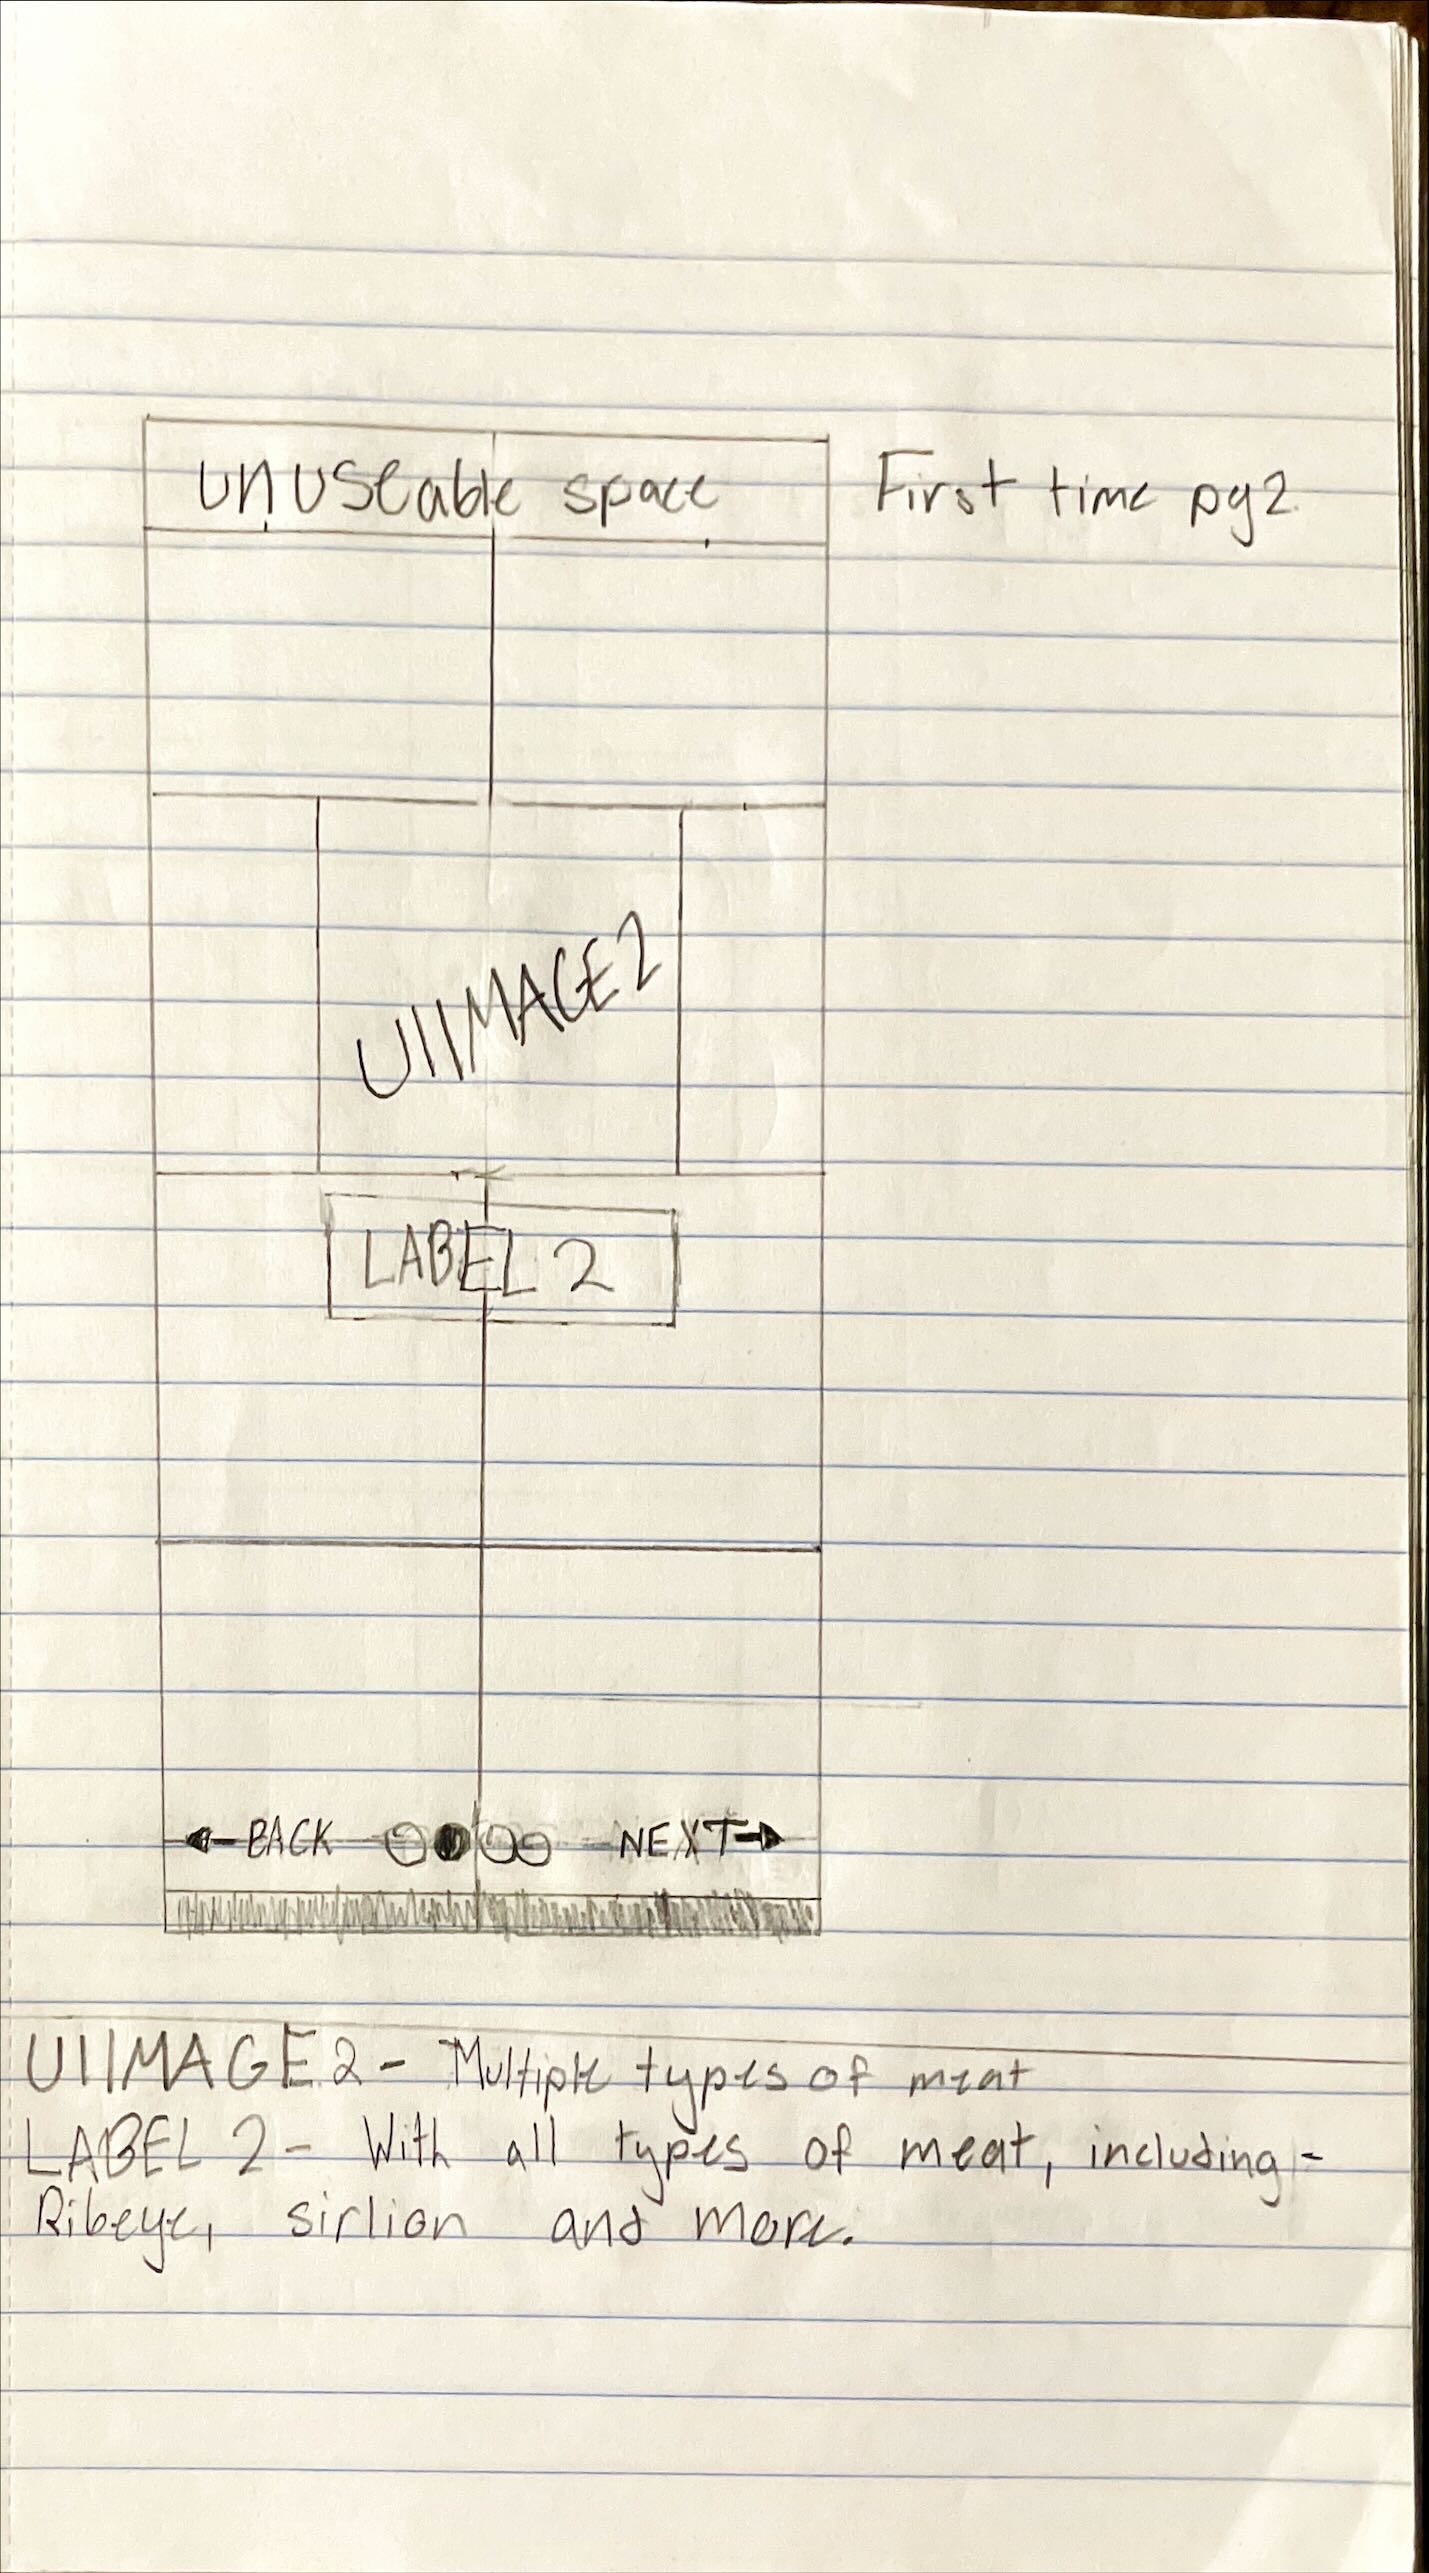 UNUSEable space
First time pg2
UIIMAGE2
LABEL 2
BACK NEXT
UIIMAGE2 - Multiple types of meat
LABEL 2 - With all types of meat, including -
Ribeye, sirlion and more.